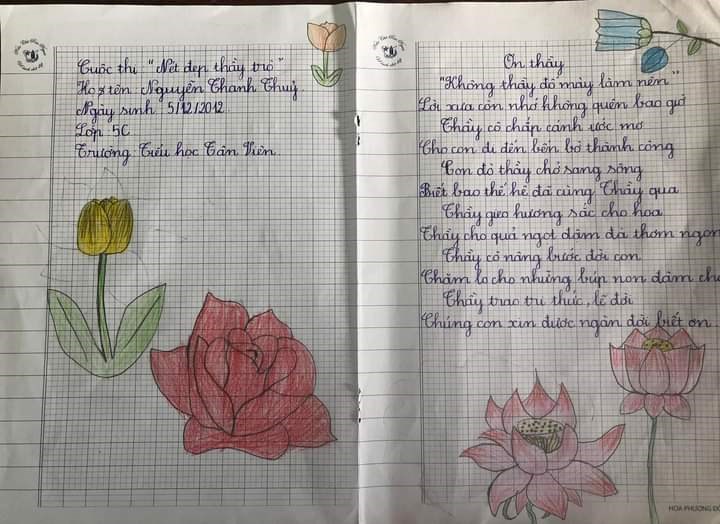 Cuộc thi "Nét đẹp thầy trò"
Họ & tên Nguyễn Thanh Thuỷ
Ngày sinh 5/12/2012
Lớp 5C
Trường Tiểu học Tản Viên
Ơn thầy
"Không thầy đố mày làm nên"
Lời xưa còn nhớ không quên bao giờ
Thầy cô chắp cánh ước mơ
Cho con đi đến bến bờ thành công
Con đò thầy chở sang sông
Biết bao thế hệ đã cùng Thầy qua
Thầy gieo hương sắc cho hoa
Thầy cho quả ngọt đậm đà thơm ngon
Thầy cô nâng bước đời con
Chăm lo cho những búp non đâm
Thầy trao tri thức, lẽ đời
Chúng con xin được ngàn đời biết ơn
HOA PHƯỢNG